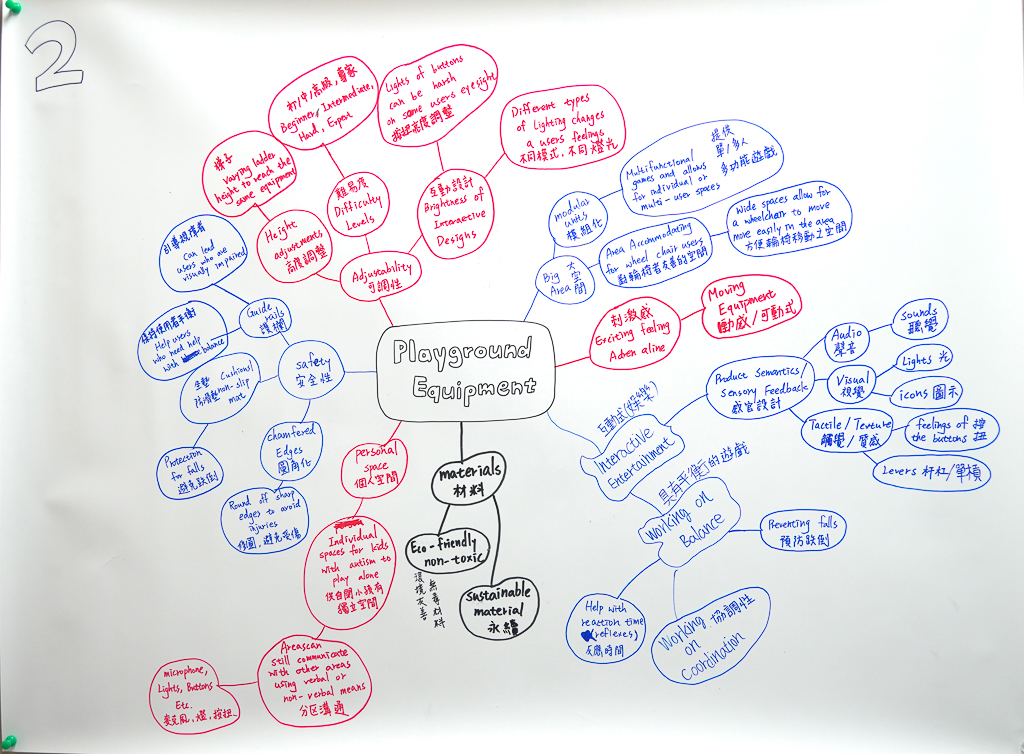 2
Playground
Equipment
Adjustability
可調性
難易度
Difficulty
Levels
初/中/高級,專家
Beginner, Intermediate,
Hard, Expert
Height
adjustments
高度調整
梯子
Varying ladder
height to reach the
same equipment
互動設計
Brightness of
Interactive
Designs
Lights of buttons
can be harsh
on some users eyesight
按扭亮度調整
Different types
of Lighting changes
a users feelings
不同模式,不同燈光
Big
Area
大
空
間
modular
units
模組化
Multifunctional
games and allows
for individual or
multi-user spaces
提供
單/多人
多功能遊戲
Area Accommodating
for wheel chair users
對輪椅者友善的空間
Wide spaces allow for
a wheelchair to move
move easily in the area
方便輪椅移動之空間
刺激感
Exciting feeling
Adrenaline
Moving
Equipment
動感/可動式
互動式(娛樂)
Interactive
Entertainment
Product Semantics/
Sensory Feedback
感官設計
Audio
聲音
sounds
聽覺
Visual
視覺
Lights 光
icons 圖示
Tactile/Texture
觸覺/質感
feelings of
the buttons
按
扭
Levers 杆杠/單槓
具有平衡的遊戲
Working on
Balance
Preventing falls
預防跌倒
Help with
reaction time
(reflexes)
反應時間
Working
on
Coordination
協調性
materials
材料
Eco-friendly
non-toxic
環境友善
無毒材料
sustainable
material
永續
personal
space
個人空間
Individual
spaces for kids
with autism to
play alone
供自閉小孩有
獨立空間
Areas can
still communicate
with other areas
using verbal or
non-verbal means
分区溝通
microphone,
Lights, Buttons
Etc.
麥克風,燈,按扭..
safety
安全性
Guide
rails
護欄
引導視障者
Can lead
users who are
visually impaired
使用者平衡
Help users
who need help
with balance
Cushions/
non-slip
mat
防滑墊
Protection
for falls
避免跌倒
chamfered
Edges
圓角化
Round off sharp
edges to avoid
injuries
倒圓,避免受傷